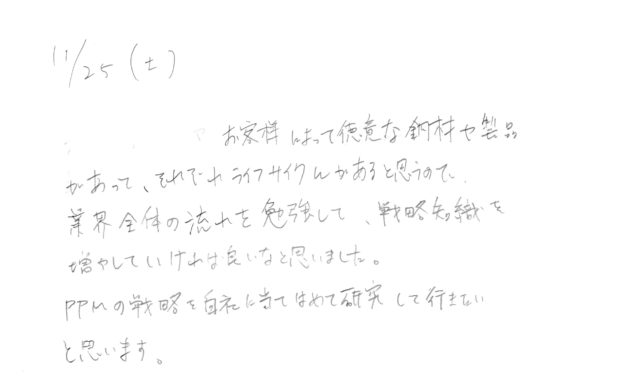 11/25（土）
お客様によって得意な鋼材や製品
があって、それぞれライフサイクルがあると思うので、
業界全体の流れを勉強して、戦略知識を
増やしていければ良いなと思いました。
PPMの戦略を自社に当てはめて研究して行きたい
と思います。